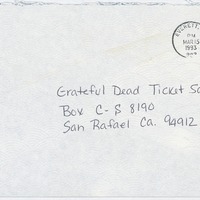 EVERETT,
PM
MAR 15
1993
Grateful Dead Ticket Sa
Box C-S 8190
San Rafael Ca. 94912